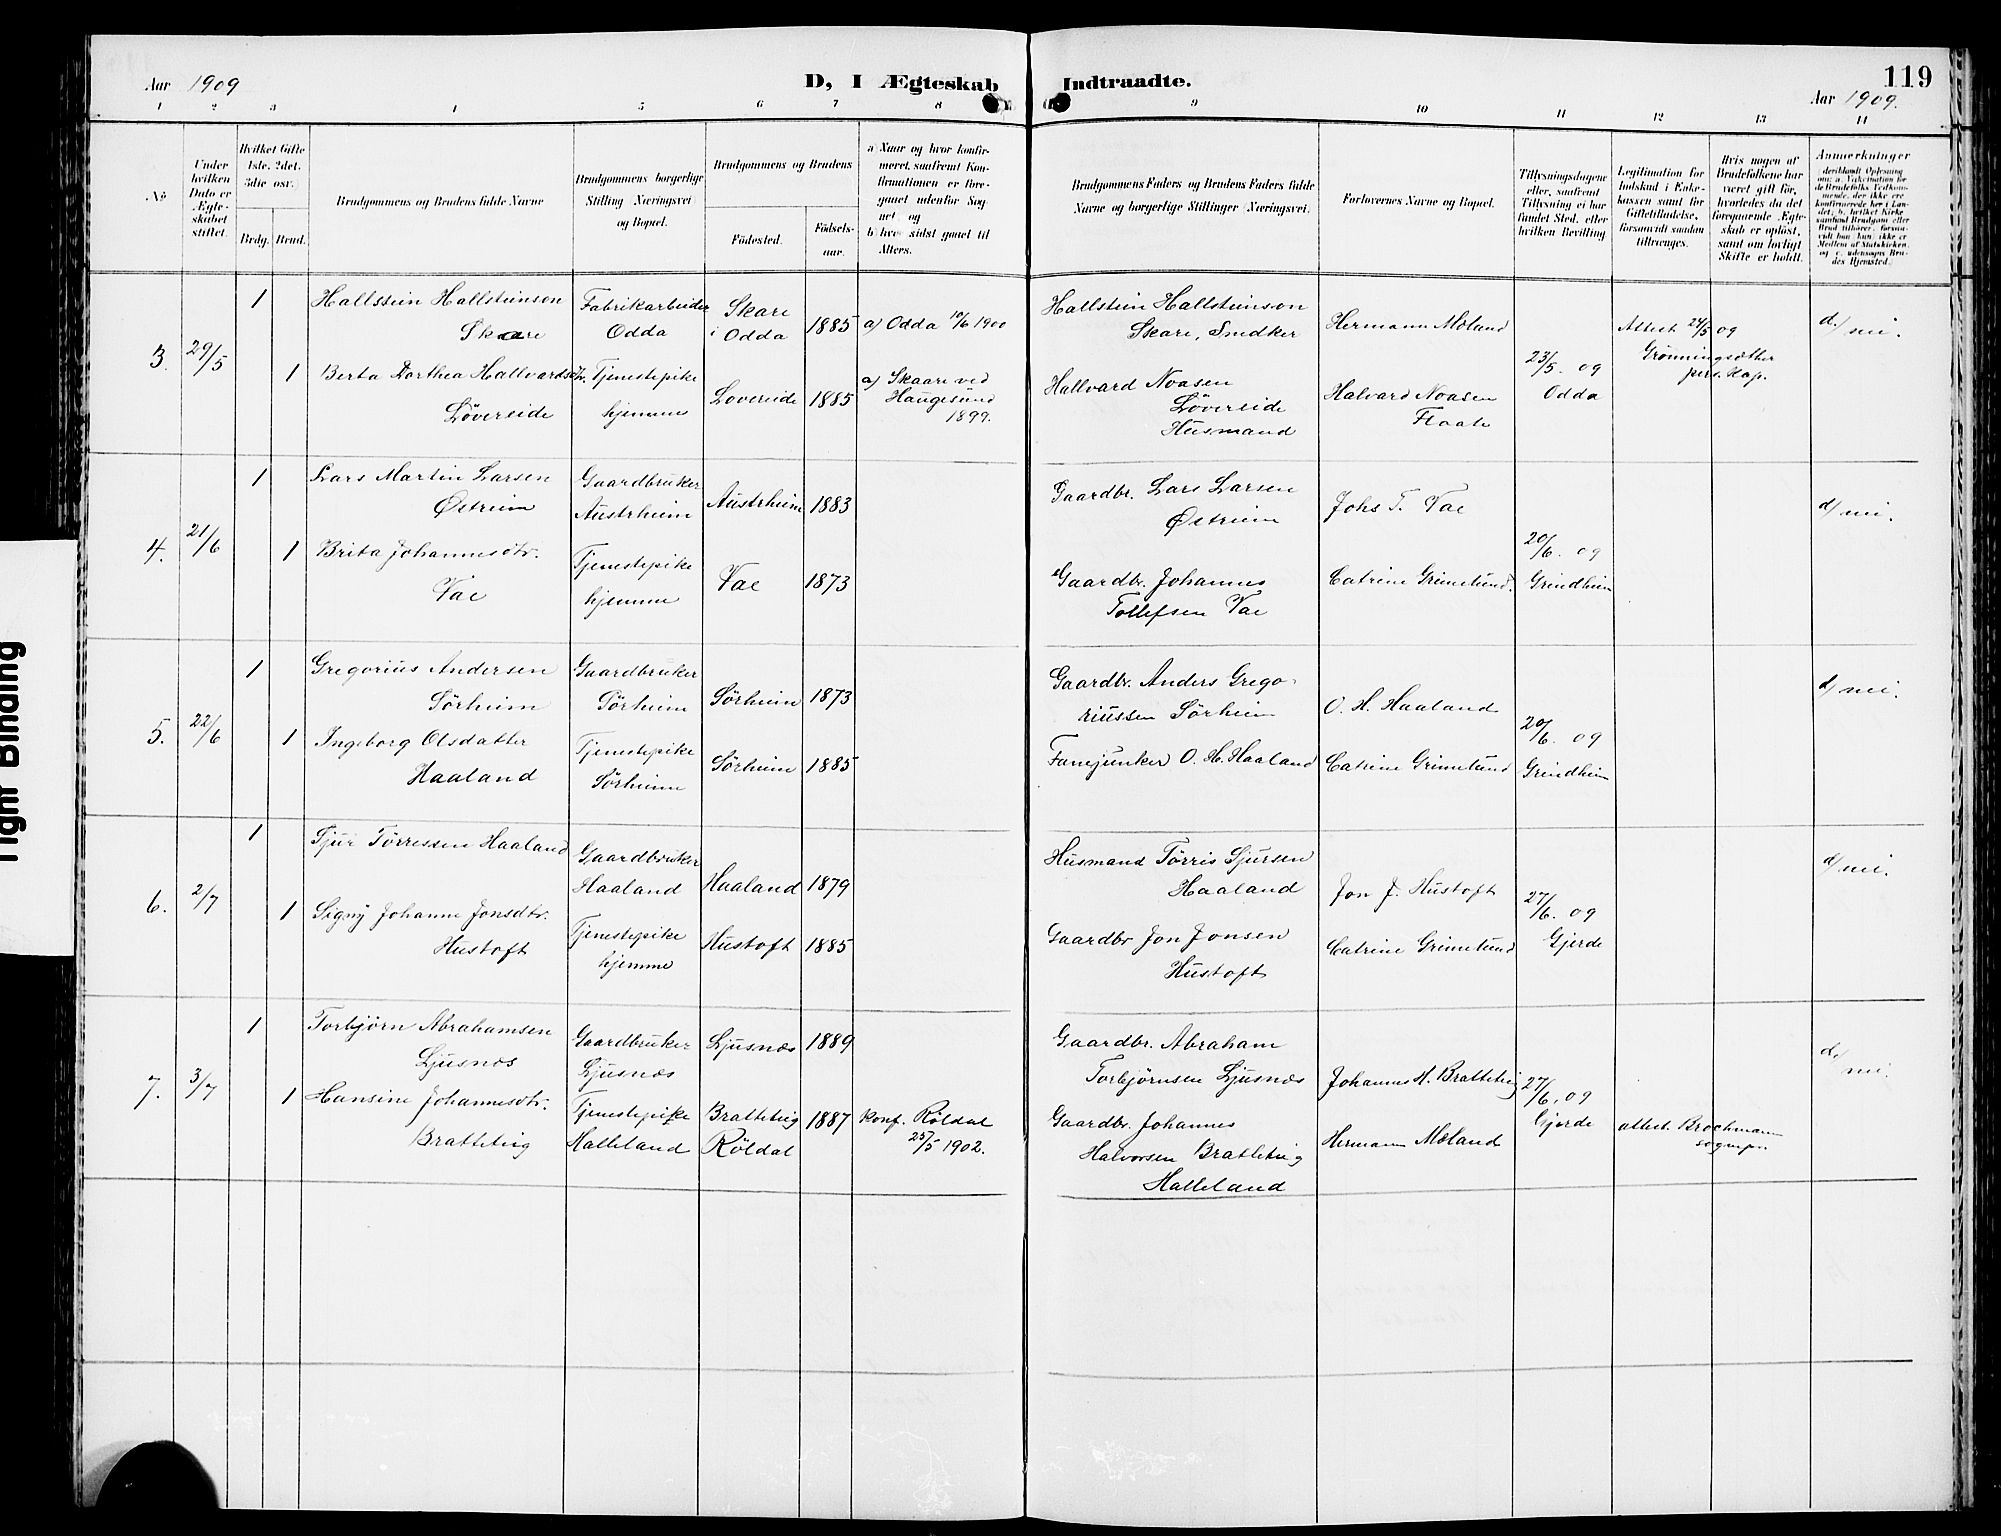 Aar 1909
D, I Ægteskab Indtraadte.
119
Aar 1909.
1 2 3 4 5 6 7 8 9 10 11 12 13 14
No
Under hvilken Dato er Ægteskabet stiftet.
Hvilket Gifte 1ste, 2det, 3die osv.)
Brdg. Brud.
Brudgommens og Brudens fulde Navne
Brudgommens borgerlige Stilling (Næringsvei og Bopæl.
Brudgommens og Brudens
Fødested.
Fødselsaar.
a) Naar og hvor konfirmeret, saafremt Konfirmationen er foregaaet udenfor Sognet, og
b) hvor sidst gaaet til Alters.
Brudgommens Faders og Brudens Faders fulde Navne og borgerlige Stillinger (Næringsvei.
Forlovernes Navne og Bopæl.
Tillysningsdagene eller, saafremt Tillysning ei har fundet Sted, efter hvilken Bevilling
Legitimation for Indskud i Enkekassen samt for Giftetilladelse, forsaavidt saadan tiltrænges.
Hvis nogen af Brudefolkene har været gift før, hvorledes da det foregaaende Ægteskab er opløst, samt om lovligt Skifte er holdt.
Anmerkninger
3. 29/5
1 Hallstein Hallsteinson
Skaare
Fabrikarbeider
Odda
Skare
i Odda
1885
a) Odda 10/6 1900
Hallstein Hallsteinson
Skare, Snedker
Hermann Mæland
23/5. 09
Odda
Attest 24/5 09
Grønningsæther
pers. Kap.
d/ nei.
1 Berta Dorthea Hallvardsdtr.
Løvereide
Tjenestepike
hjemme
Lovereide
1885
a) Skaare ved
Haugesund
1899.
Hallvard Noasen
Løvereide
Husmand
Halvard Noasen
Flaate
4. 21/6
1 Lars Martin Larsen
Østreim
Gaardbruker
Austrheim
Austrheim
1883
Gaardbr. Lars Larsen
Østreim
Johs T. Vae
20/6. 09
Grindheim
d/ nei.
1 Brita Johannesdtr.
Vae
Tjenestepike
hjemme
Vae
1873
Gaardbr. Johannes
Tollefsen Vae
Catrine Grimelund.
5. 22/6
1 Gregorius Andersen
Sørheim
Gaardbruker
Sørheim
Sørheim
1873
Gaardbr. Anders Grego-
riussen Sørheim
O. H. Haaland
20/6. 09
Grindheim
d/ nei.
1 Ingeborg Olsdatter
Haaland
Tjenestepike
Sørheim
Sørheim
1885
Fanejunker O. H. Haaland
Catrine Grimelund
6. 2/7
1 Sjur Tørressen Haaland
Gaardbruker
Haaland
Haaland
1879
Husmand Tørris Sjursen
Haaland
Jon J. Hustoft
27/6. 09
Gjerde
d/ nei.
1 Signy Johanne Jonsdtr.
Hustoft
Tjenestepike
hjemme
Hustoft
1885
Gaardbr Jon Jonsen
Hustoft
Catrine Grimelund
7. 3/7
1 Torbjørn Abrahamsen
Ljusnæs
Gaardbruker
Ljusnæs
Ljusnæs
1889
Gaardbr. Abraham
Torbjørnsen Ljusnæs
Johannes H. Bratteteig
27/6. 09
Gjerde
d./ nei.
1 Hansine Johannesdtr.
Bratteteig
Tjenestepike
Halleland
Bratteteig
Røldal
1887
konf. Røldal
25/5 1902.
Gaardbr. Johannes
Halvorsen Bratteteig
Halleland
Hermann Mæland
attest. Brochmann
sognepr.
Tight Binding